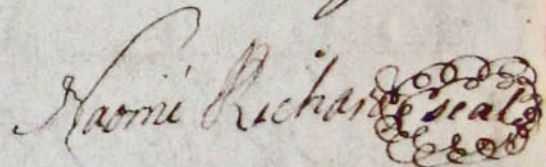 Naomi Richards seal